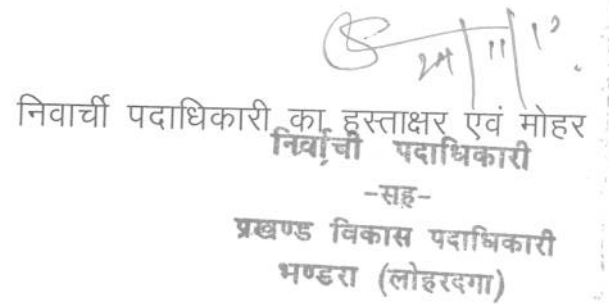 निवार्ची पदाधिकारी का हस्ताक्षर एवं मोहर
निर्वाची पदाधिकारी
-सह-
प्रखण्ड विकास पदाधिकारी
भण्डरा (लोहरदगा)